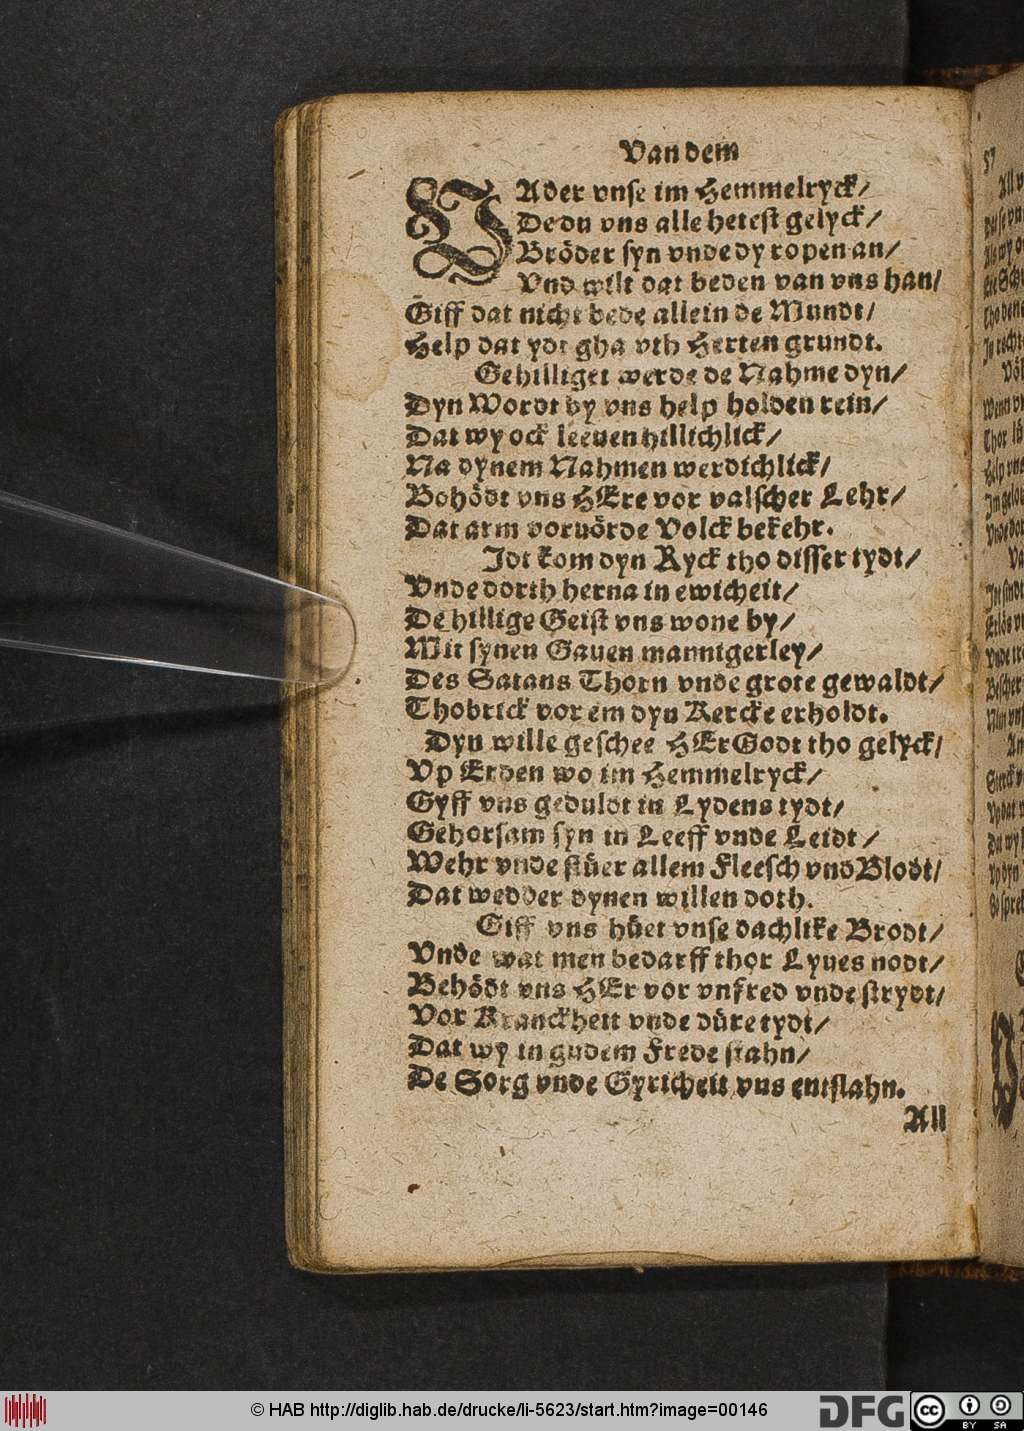 Van dem
VAder vnse im Hemmelryck/
De du vns alle hetest gelyck/
Bröder syn vnde dy ropen an/
Vnd wilt dat beden van vns han/
Giff dat nicht bede allein de Mundt/
Help dat ydt gha vth Herten grundt.
Gehilliget werde de Nahme dyn/
Dyn Wordt by vns help holden rein/
Dat wy ock leeuen hillichlick/
Na dynem Nahmen werdichlick/
Bohödt vns HEre vor valscher Lehr/
Dat arm voruörde Volck bekehr.
Idt kom dyn Ryck tho disser tydt/
Vnde dorth herna in ewicheit/
De hillige Geist vns wone by/
Mit synen Gauen mannigerley/
Des Satans Thorn vnde grote gewaldt/
Thobrick vor em dyn Kercke erholdt.
Dyn wille geschee HEr Godt tho gelyck/
Vp Erden wo im Hemmelryck/
Gyff vns geduldt in Lydens tydt/
Gehorsam syn in Leeff vnde Leidt/
Wehr vnde stüer allem Fleesch vnd Blodt/
Dat wedder dynen willen doth.
Giff vns hüet vnse dachlike Brodt/
Vnde wat men bedarff thor Lyues nodt/
Behödt vns HEr vor vnfred vnde strydt/
Vor Kranckheit vnde düre tydt/
Dat wy in gudem Frede stahn/
De Sorg vnde Gyricheit vns entslahn.
All
57
© HAB http://diglib.hab.de/drucke/li-5623/start.htm?image=00146
DFG
cc
BY SA